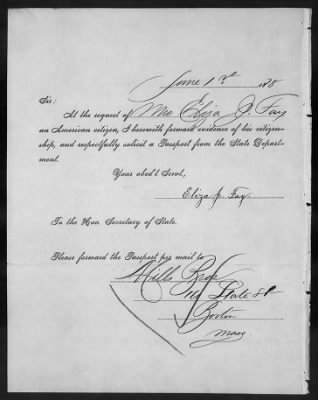 June 13th 188
Sir:
At the request of Mrs Eliza J. Fay
an American citizen, I herewith forward evidence of his citizen-
ship, and respectfully solicit a Passport from the State Depart-
ment.
Your obed't Servt,
Eliza J. Fay.
To the Hon. Secretary of State.
Please forward the Passport per mail to
Mills Bros
State St
Boston
Mass.